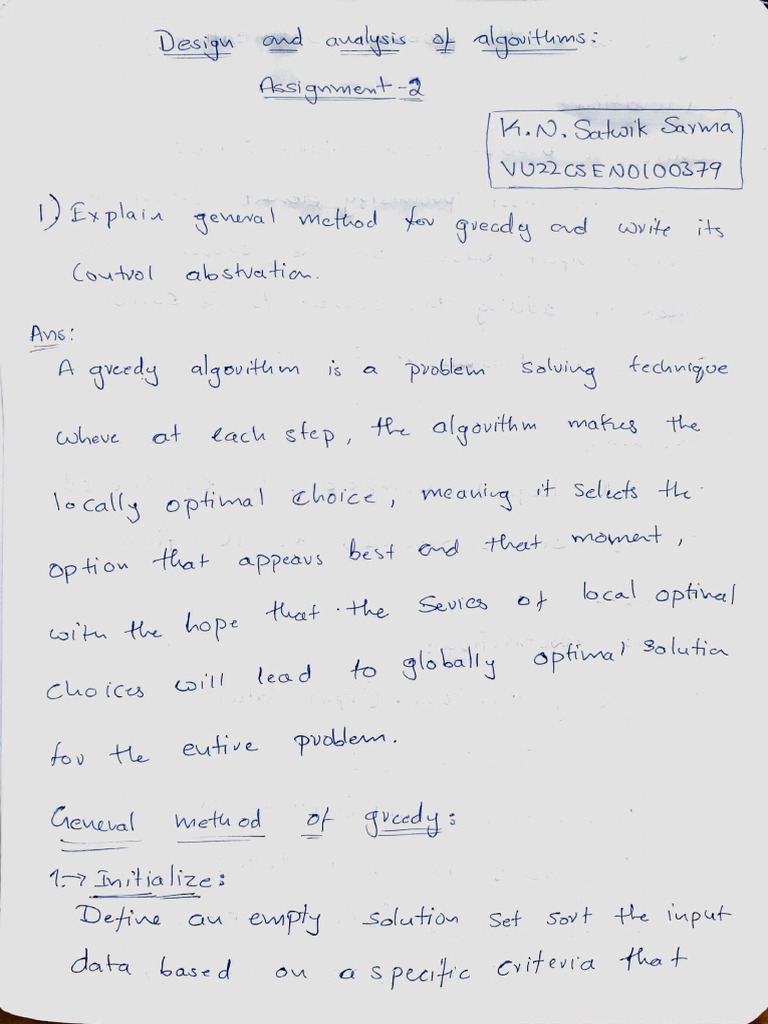 Design and analysis of algorithms:
Assignment-2
K.N. Satwik Sarma
VU22CSEN0100379
1) Explain general method for greedy and write its
Control abstration.
Ans:
A greedy algorithm is a problem solving technique
where at each step, the algorithm makes the
locally optimal choice, meaning it selects the
option that appears best and that moment,
with the hope that the series of local optimal
choices will lead to globally optimal solution
for the entire problem.
General method of greedy:
1.→ Initialize:
Define an empty solution set sort the input
data based on a specific criteria that